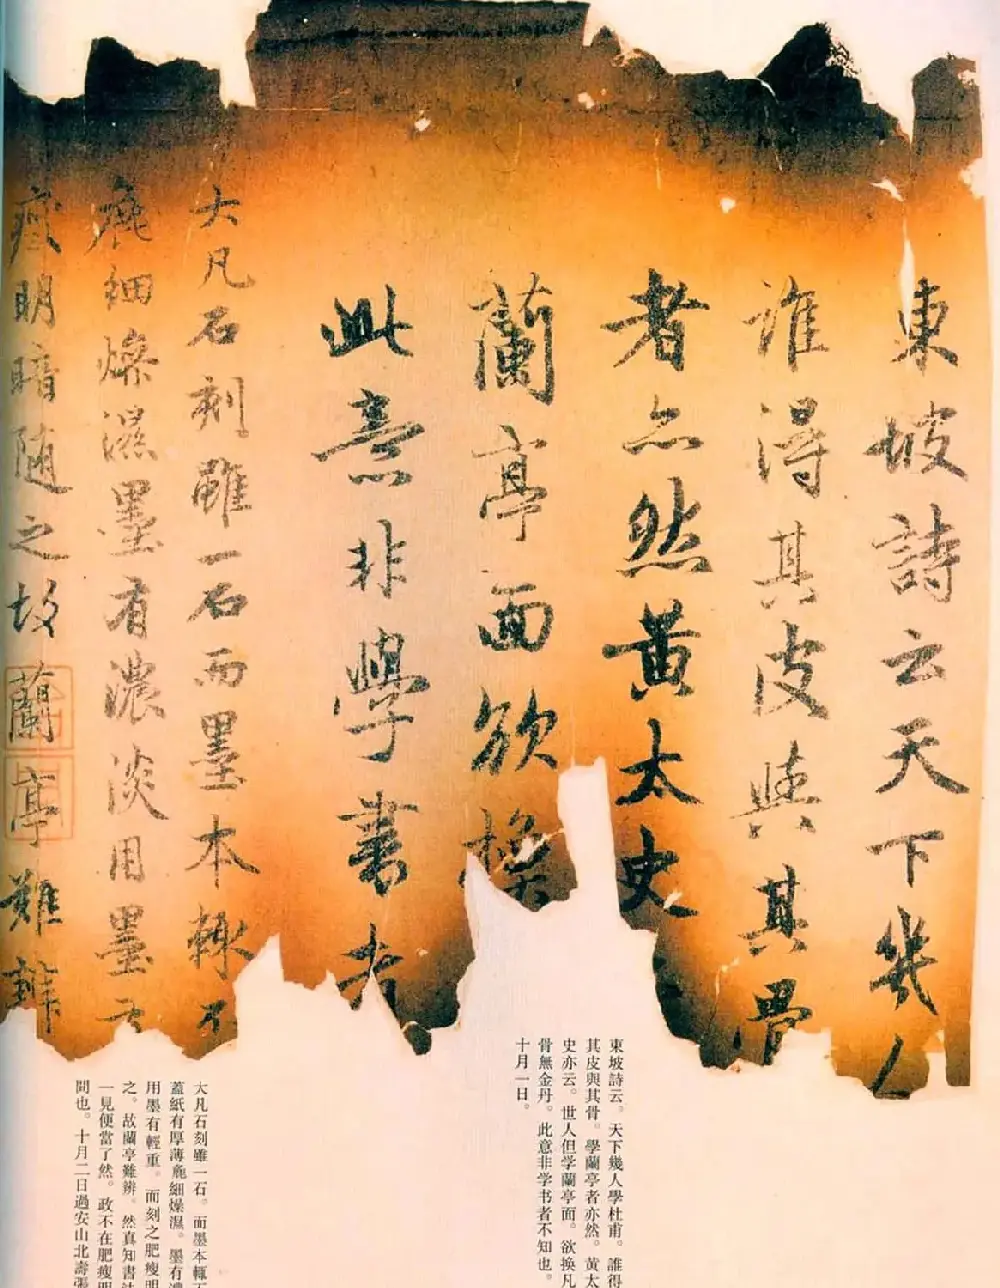 東坡詩云天下幾人
誰得其皮與其骨
者亦然黃太史
蘭亭面欲換
此意非學書者
大凡石刻雖一石而墨本輙不
麁細燥濕墨有濃淡用墨有
瘦明暗随之故蘭亭難辨
東坡詩云。天下幾人學杜甫。誰得
其皮與其骨。學蘭亭者亦然。黃太
史亦云。世人但学蘭亭面。欲換凡
骨無金丹。此意非学书者不知也。
十月一日。
大凡石刻雖一石。而墨本輒不
蓋紙有厚薄麁細燥濕。墨有濃
用墨有輕重。而刻之肥瘦明
之。故蘭亭難辨。然真知書法
一見便當了然。政不在肥瘦明
間也。十月二日過安山北壽張